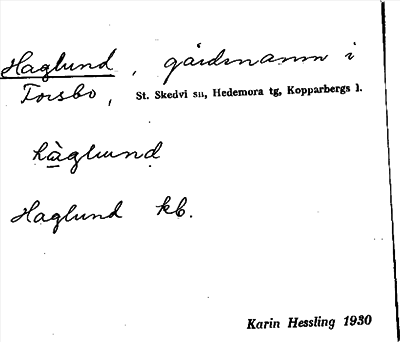 Haglund, gårdsnamn i
Torsbo, St. Skedvi sn, Hedemora tg, Kopparbergs l.
hàglund
Haglund kb.
Karin Hessling 1930